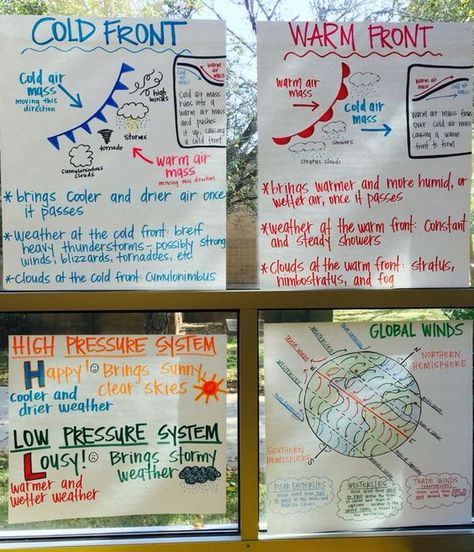 COLD FRONT
Cold air
mass
moving this
direction
high
winds
Storms
tornado
Cumulonimbus
clouds
warm air
mass
moving this direction
warm air
mass
Cold air
mass
Cold air mass
runs into a
warm air
mass and
pushes it
up, causing
a cold front
*brings cooler and drier air once
it passes
*weather at the cold front: breif,
heavy thunderstorms - possibly strong
winds, blizzards, tornadoes, etc
*clouds at the cold front: cumulonimbus
WARM FRONT
warm air
mass
Cold air
mass
showers
Stratus clouds
warm air
cold air
mass
over cold air
mass causing
a warm front
to form
*brings warmer and more humid, or
wetter air, once it passes
*weather at the warm front: constant
and steady showers
*clouds at the warm front: stratus,
nimbostratus, and fog
HIGH PRESSURE SYSTEM
Happy! Brings sunny,
clear skies
cooler and
drier weather
LOW PRESSURE SYSTEM
Lousy! Brings stormy
weather
warmer and
wetter weather
GLOBAL WINDS
NORTHERN
HEMISPHERE
SOUTHERN
HEMISPHERE
POLAR EASTERLIES
WESTERLIES
TRADE WINDS